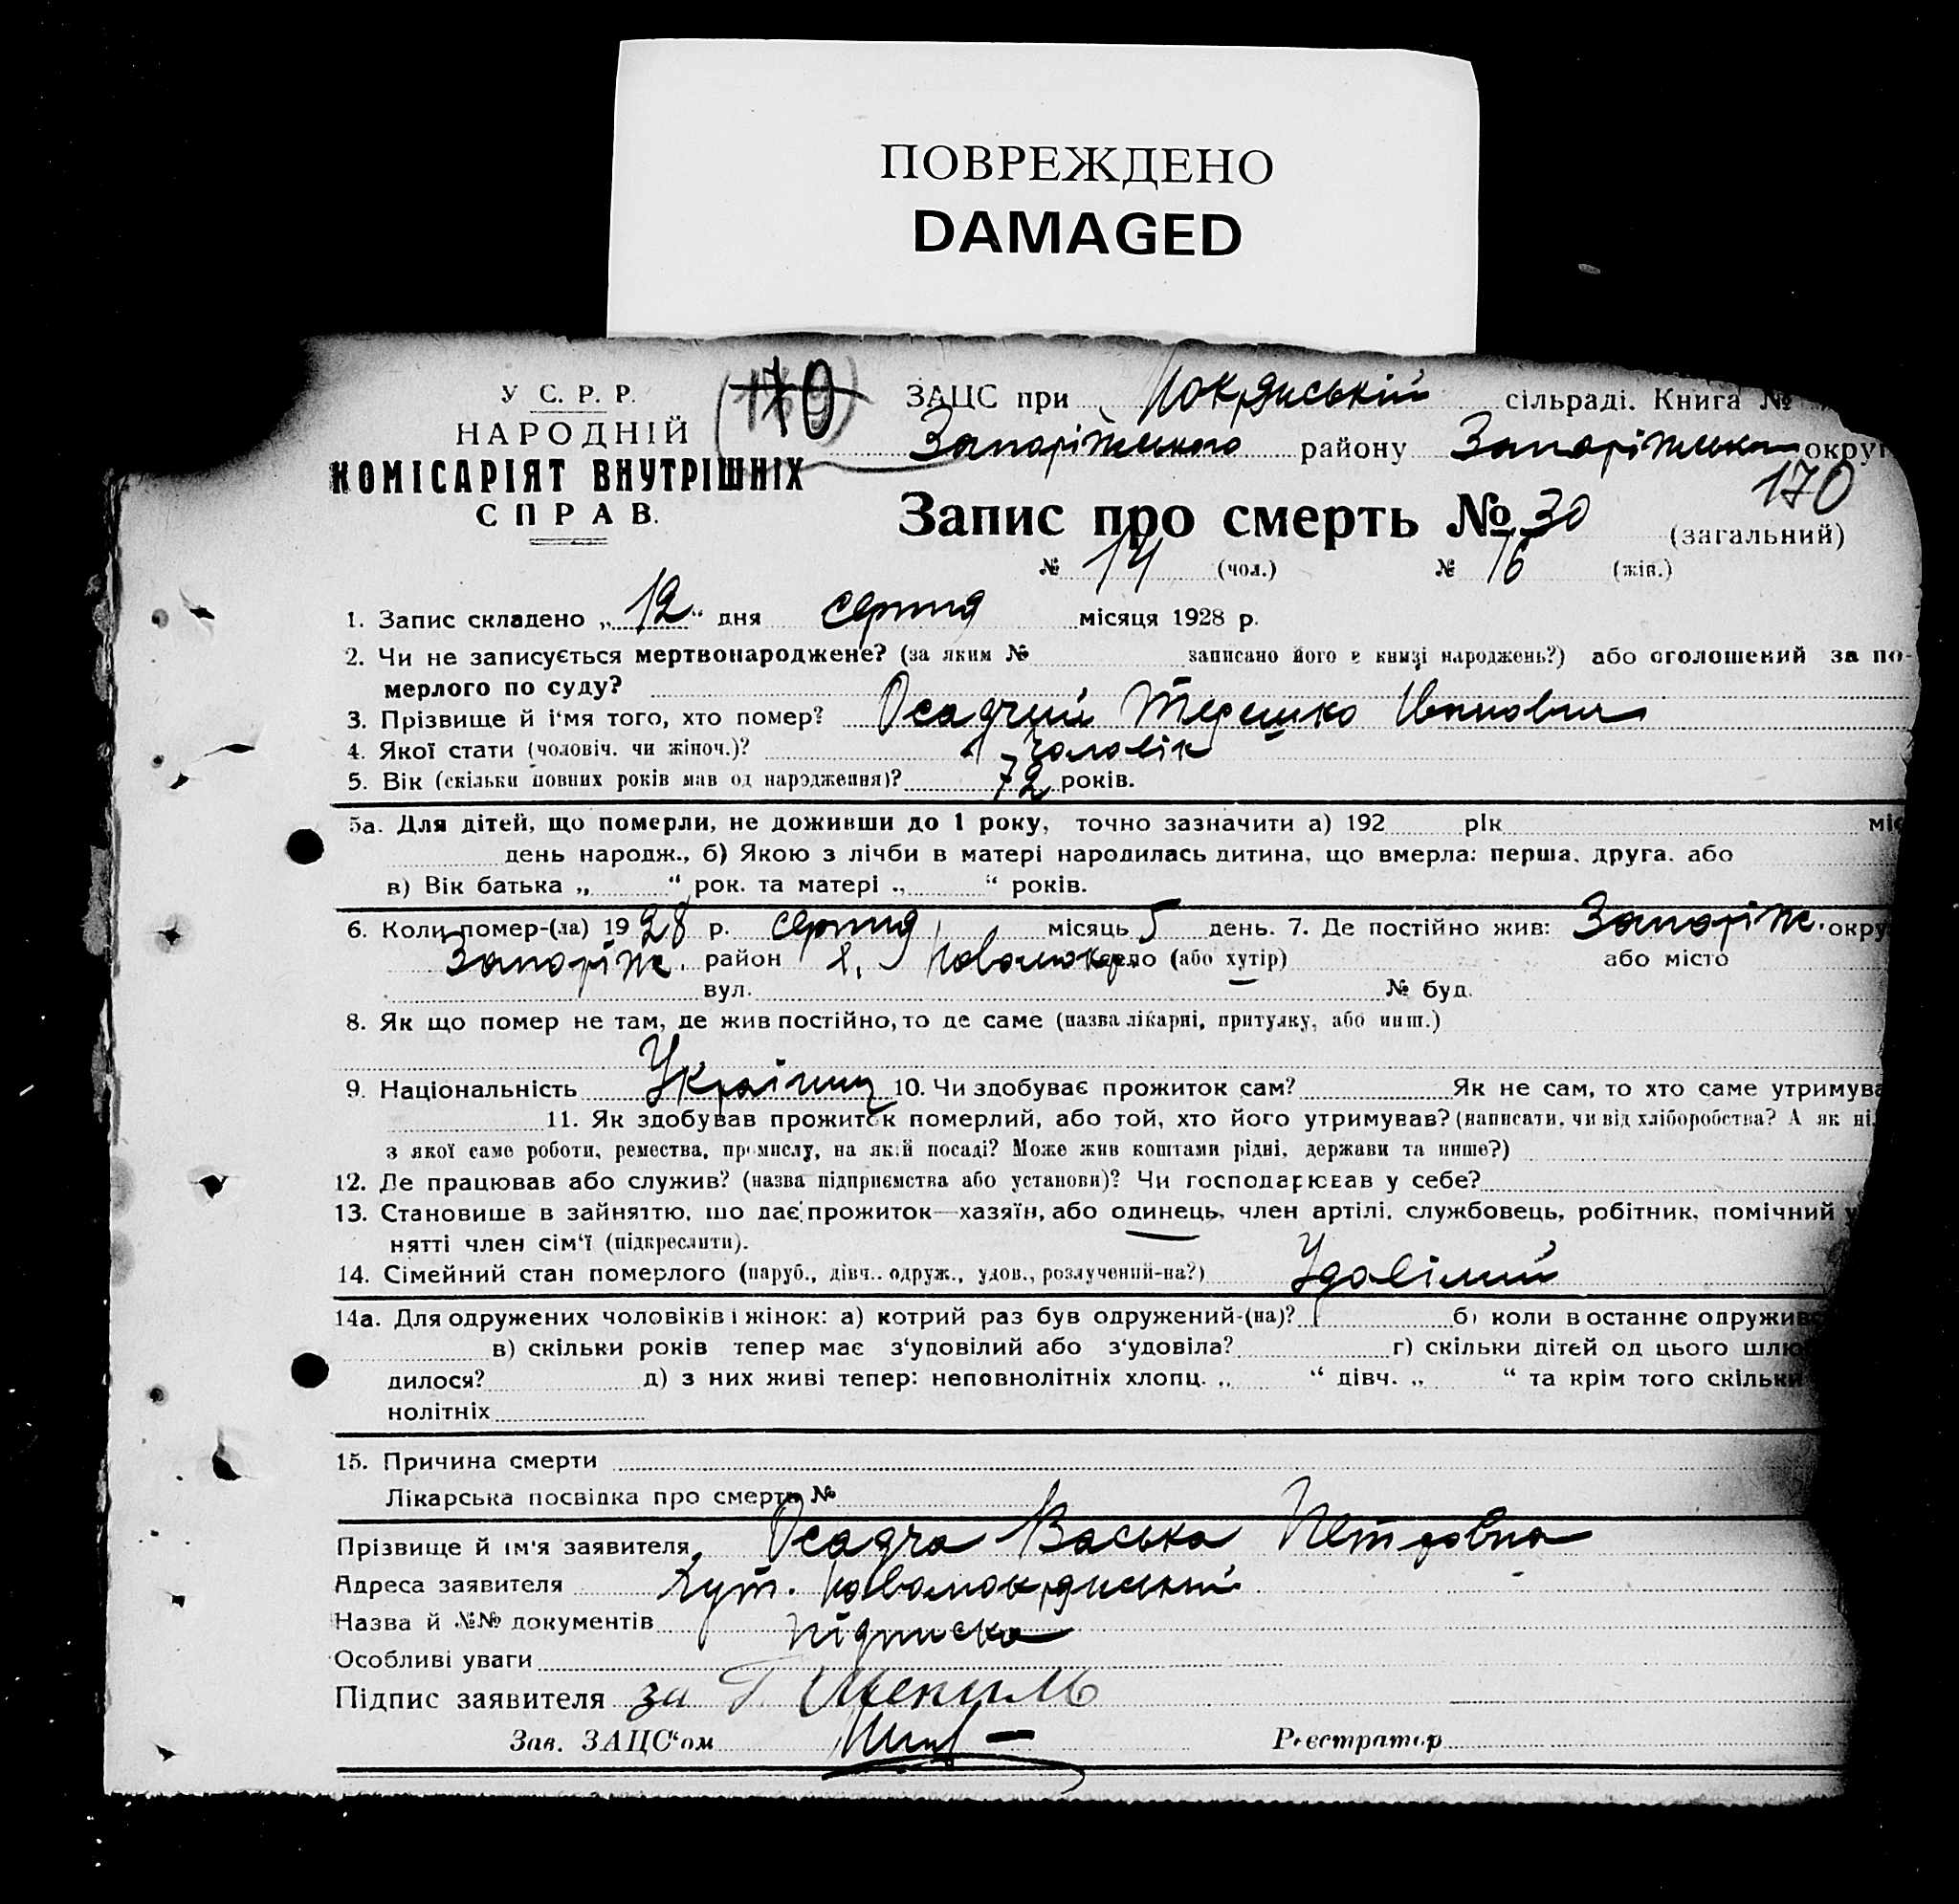 ПОВРЕЖДЕНО
DAMAGED
У С. Р. Р.
НАРОДНІЙ
КОМІСАРІЯТ ВНУТРІШНІХ
СПРАВ.
170
ЗАЦС при сільраді. Книга №
Запоріжського району Запоріжська округ
170
Запис про смерть № 30 (загальний)
№ 14 (чол.) № 16 (жін.)
1. Запис складено „ 12 “ дня серпня місяця 1928 р.
2. Чи не записується мертвонароджене? (за яким № записано його в книзі народжень?) або оголошений за по-
мерлого по суду?
3. Прізвище й і‘мя того, хто помер? Осадчий Терешко Іванович
4. Якої стати (чоловіч. чи жіноч.)? чоловік
5. Вік (скільки повних років мав од народження)? 72 років.
5а. Для дітей, що померли, не доживши до 1 року, точно зазначити а) 192 рік міс
день народж., б) Якою з лічби в матері народилась дитина, що вмерла: перша, друга. або
в) Вік батька „ “ рок. та матері „ “ років.
6. Коли помер-(ла) 1928 р. серпня місяць 5 день. 7. Де постійно жив: Запоріж. окру
Запоріж. район х. Новомокр. село (або хутір) або місто
вул. № буд.
8. Як що помер не там, де жив постійно, то де саме (назва лікарні, притулку, або инш.)
9. Національність Українец 10. Чи здобуває прожиток сам? Як не сам, то хто саме утримува
11. Як здобував прожиток померлий, або той, хто його утримував? (написати, чи від хліборобства? А як ні,
з якої саме роботи, ремества, промислу, на якій посаді? Може жив коштами рідні, держави та инше?)
12. Де працював або служив? (назва підприємства або установи)? Чи господарював у себе?
13. Становище в зайняттю, що дає прожиток—хазяїн, або одинець, член артілі, службовець, робітник, помічний у
нятті член сім‘ї (підкреслити).
14. Сімейний стан померлого (паруб., дівч.. одруж., удов., розлучений-на?) Удовілий
14а. Для одружених чоловіків і жінок: а) котрий раз був одружений-(на)? б) коли в останнє одружив
в) скільки років тепер має з‘удовілий або з‘удовіла? г) скільки дітей од цього шлю
дилося? д) з них живі тепер: неповнолітніх хлопц. „ “ дівч. „ “ та крім того скільки
нолітніх
15. Причина смерти
Лікарська посвідка про смерть №
Прізвище й ім'я заявителя Осадча Васька Петровна
Адреса заявителя Хут. Новомокрянський
Назва й №№ документів підписка
Особливі уваги
Підпис заявителя за
Зав. ЗАЦС‘ом Реєстратор